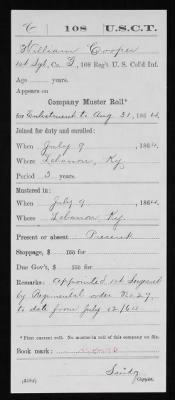 C | 108 | U.S.C.T.
William Cooper
1st Sgt, Co. G, 108 Reg't U. S. Col'd Inf.
Age years.
Appears on
Company Muster Roll*
for Enlistment to Aug 31, 1864.
Joined for duty and enrolled:
When July 9, 1864.
Where Lebanon, Ky.
Period 3 years.
Mustered in:
When July 9, 1864.
Where Lebanon, Ky.
Present or absent Present
Stoppage, $ 100 for
Due Gov't, $ 100 for
Remarks: Appointed 1st Sergeant
by Regimental order No 27
to date from July 12/64
* First current roll. No muster in roll of this company on file.
Book mark:
Copyist.